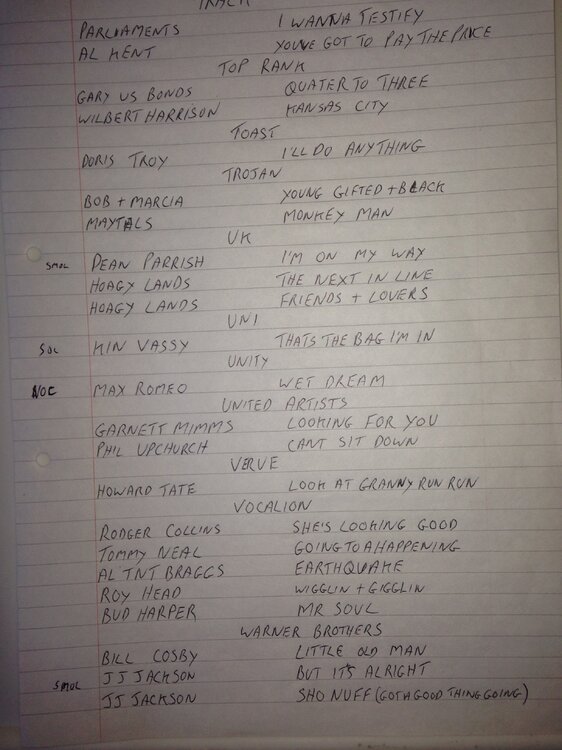 TRACK
PARLIAMENTS I WANNA TESTIFY
AL KENT YOUVE GOT TO PAY THE PRICE
TOP RANK
GARY US BONDS QUATER TO THREE
WILBERT HARRISON KANSAS CITY
TOAST
DORIS TROY I'LL DO ANYTHING
TROJAN
BOB + MARCIA YOUNG GIFTED + BLACK
MAYTALS MONKEY MAN
UK
SMOL DEAN PARRISH I'M ON MY WAY
HOAGY LANDS THE NEXT IN LINE
HOAGY LANDS FRIENDS + LOVERS
UNI
SOL KIN VASSY THATS THE BAG I'M IN
UNITY
NOC MAX ROMEO WET DREAM
UNITED ARTISTS
GARNETT MIMMS LOOKING FOR YOU
PHIL UPCHURCH CANT SIT DOWN
VERVE
HOWARD TATE LOOK AT GRANNY RUN RUN
VOCALION
RODGER COLLINS SHE'S LOOKING GOOD
TOMMY NEAL GOING TO A HAPPENING
AL TNT BRAGGS EARTHQUAKE
ROY HEAD WIGGLIN + GIGGLIN
BUD HARPER MR SOUL
WARNER BROTHERS
BILL COSBY LITTLE OLD MAN
JJ JACKSON BUT IT'S ALRIGHT
SMOL JJ JACKSON SHO NUFF (GOTH GOOD THING GOING)